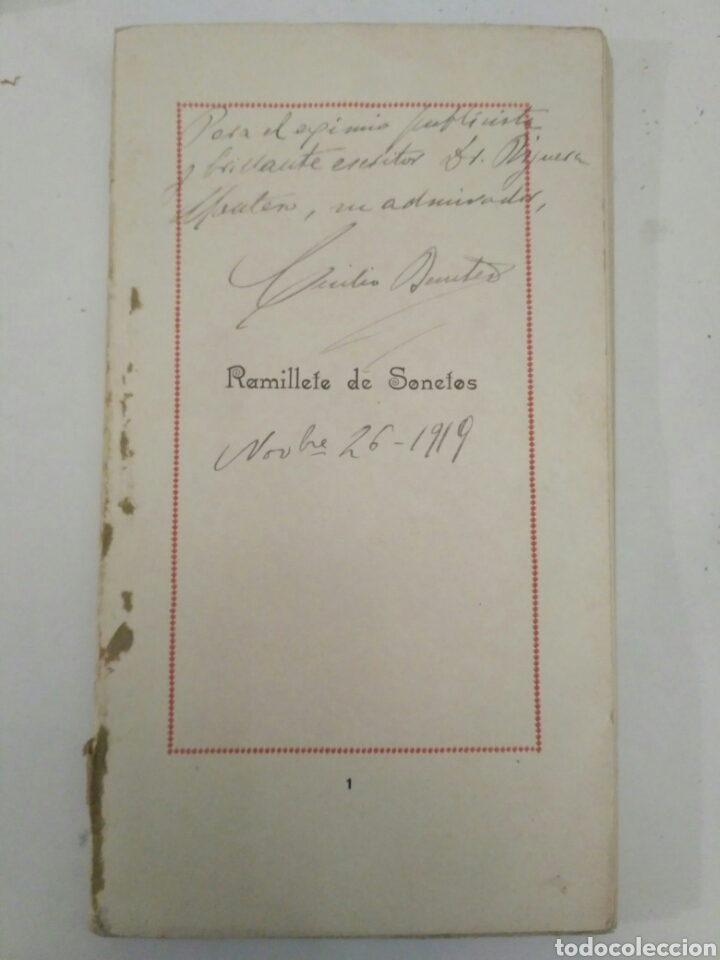 Para el eximio publicista
y brillante escritor Dr. Riguera
Montero, su admirador,
Benítez
Ramillete de Sonetos
Novbre 26-1919
1
todocoleccion